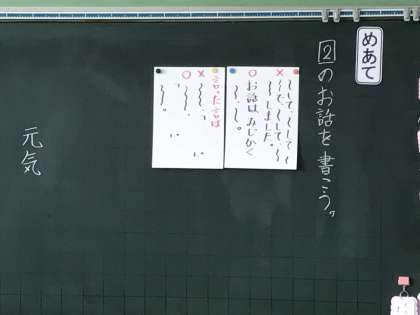 めあて
2のお話を書こう。
〜して、〜して
×〜で、〜して、〜
〜しました。
○お話はみじかく
〜。〜。
言った言は
×〜、〜。
○〜、
「〜。」
元気